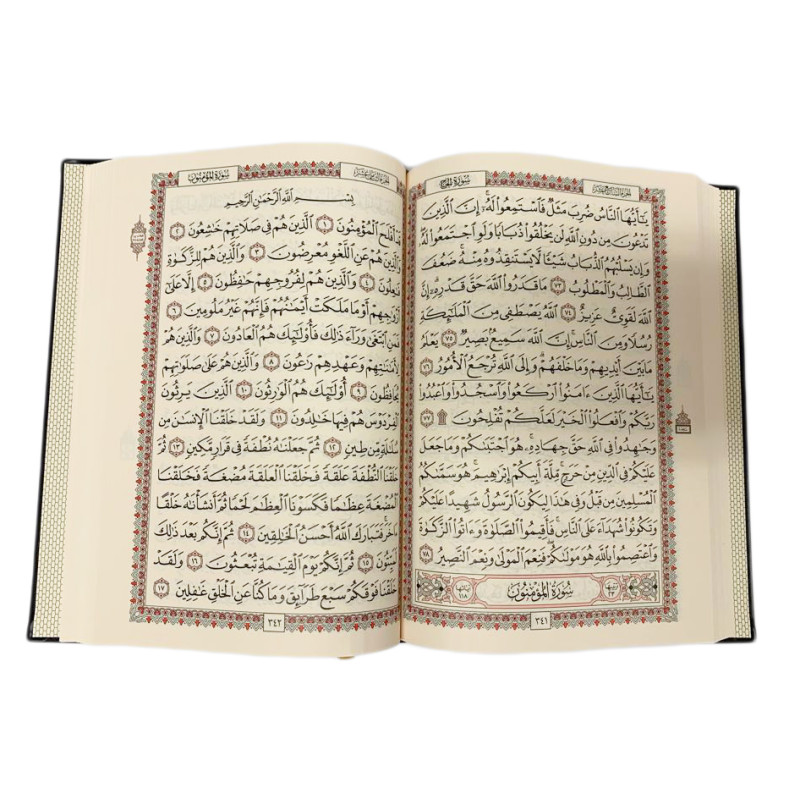 الجزء السابع عشر
سورة الحج
يَٰٓأَيُّهَا ٱلنَّاسُ ضُرِبَ مَثَلٌ فَٱسْتَمِعُوا۟ لَهُۥٓ ۚ إِنَّ ٱلَّذِينَ
تَدْعُونَ مِن دُونِ ٱللَّهِ لَن يَخْلُقُوا۟ ذُبَابًا وَلَوِ ٱجْتَمَعُوا۟ لَهُۥ ۖ
وَإِن يَسْلُبْهُمُ ٱلذُّبَابُ شَيْـًٔا لَّا يَسْتَنقِذُوهُ مِنْهُ ۚ ضَعُفَ
ٱلطَّالِبُ وَٱلْمَطْلُوبُ ٧٣ مَا قَدَرُوا۟ ٱللَّهَ حَقَّ قَدْرِهِۦٓ ۗ إِنَّ
ٱللَّهَ لَقَوِىٌّ عَزِيزٌ ٧٤ ٱللَّهُ يَصْطَفِى مِنَ ٱلْمَلَٰٓئِكَةِ
رُسُلًا وَمِنَ ٱلنَّاسِ ۚ إِنَّ ٱللَّهَ سَمِيعٌۢ بَصِيرٌ ٧٥ يَعْلَمُ
مَا بَيْنَ أَيْدِيهِمْ وَمَا خَلْفَهُمْ ۗ وَإِلَى ٱللَّهِ تُرْجَعُ ٱلْأُمُورُ ٧٦
يَٰٓأَيُّهَا ٱلَّذِينَ ءَامَنُوا۟ ٱرْكَعُوا۟ وَٱسْجُدُوا۟ وَٱعْبُدُوا۟
رَبَّكُمْ وَٱفْعَلُوا۟ ٱلْخَيْرَ لَعَلَّكُمْ تُفْلِحُونَ ۩ ٧٧
وَجَٰهِدُوا۟ فِى ٱللَّهِ حَقَّ جِهَادِهِۦ ۚ هُوَ ٱجْتَبَىٰكُمْ وَمَا جَعَلَ
عَلَيْكُمْ فِى ٱلدِّينِ مِنْ حَرَجٍ ۚ مِّلَّةَ أَبِيكُمْ إِبْرَٰهِيمَ ۚ هُوَ سَمَّىٰكُمُ
ٱلْمُسْلِمِينَ مِن قَبْلُ وَفِى هَٰذَا لِيَكُونَ ٱلرَّسُولُ شَهِيدًا عَلَيْكُمْ
وَتَكُونُوا۟ شُهَدَآءَ عَلَى ٱلنَّاسِ ۚ فَأَقِيمُوا۟ ٱلصَّلَوٰةَ وَءَاتُوا۟ ٱلزَّكَوٰةَ
وَٱعْتَصِمُوا۟ بِٱللَّهِ هُوَ مَوْلَىٰكُمْ ۖ فَنِعْمَ ٱلْمَوْلَىٰ وَنِعْمَ ٱلنَّصِيرُ ٧٨
سُورَةُ ٱلْمُؤْمِنُونَ
٣٤١
سورة المؤمنون
بِسْمِ ٱللَّهِ ٱلرَّحْمَٰنِ ٱلرَّحِيمِ
قَدْ أَفْلَحَ ٱلْمُؤْمِنُونَ ١ ٱلَّذِينَ هُمْ فِى صَلَاتِهِمْ خَٰشِعُونَ ٢
وَٱلَّذِينَ هُمْ عَنِ ٱللَّغْوِ مُعْرِضُونَ ٣ وَٱلَّذِينَ هُمْ لِلزَّكَوٰةِ
فَٰعِلُونَ ٤ وَٱلَّذِينَ هُمْ لِفُرُوجِهِمْ حَٰفِظُونَ ٥ إِلَّا عَلَىٰٓ
أَزْوَٰجِهِمْ أَوْ مَا مَلَكَتْ أَيْمَٰنُهُمْ فَإِنَّهُمْ غَيْرُ مَلُومِينَ ٦
فَمَنِ ٱبْتَغَىٰ وَرَآءَ ذَٰلِكَ فَأُو۟لَٰٓئِكَ هُمُ ٱلْعَادُونَ ٧ وَٱلَّذِينَ هُمْ
لِأَمَٰنَٰتِهِمْ وَعَهْدِهِمْ رَٰعُونَ ٨ وَٱلَّذِينَ هُمْ عَلَىٰ صَلَوَٰتِهِمْ
يُحَافِظُونَ ٩ أُو۟لَٰٓئِكَ هُمُ ٱلْوَٰرِثُونَ ١٠ ٱلَّذِينَ يَرِثُونَ
ٱلْفِرْدَوْسَ هُمْ فِيهَا خَٰلِدُونَ ١١ وَلَقَدْ خَلَقْنَا ٱلْإِنسَٰنَ مِن
سُلَٰلَةٍ مِّن طِينٍ ١٢ ثُمَّ جَعَلْنَٰهُ نُطْفَةً فِى قَرَارٍ مَّكِينٍ ١٣ ثُمَّ
خَلَقْنَا ٱلنُّطْفَةَ عَلَقَةً فَخَلَقْنَا ٱلْعَلَقَةَ مُضْغَةً فَخَلَقْنَا
ٱلْمُضْغَةَ عِظَٰمًا فَكَسَوْنَا ٱلْعِظَٰمَ لَحْمًا ثُمَّ أَنشَأْنَٰهُ خَلْقًا
ءَاخَرَ ۚ فَتَبَارَكَ ٱللَّهُ أَحْسَنُ ٱلْخَٰلِقِينَ ١٤ ثُمَّ إِنَّكُم بَعْدَ ذَٰلِكَ
لَمَيِّتُونَ ١٥ ثُمَّ إِنَّكُمْ يَوْمَ ٱلْقِيَٰمَةِ تُبْعَثُونَ ١٦ وَلَقَدْ
خَلَقْنَا فَوْقَكُمْ سَبْعَ طَرَآئِقَ وَمَا كُنَّا عَنِ ٱلْخَلْقِ غَٰفِلِينَ ١٧
٣٤٢